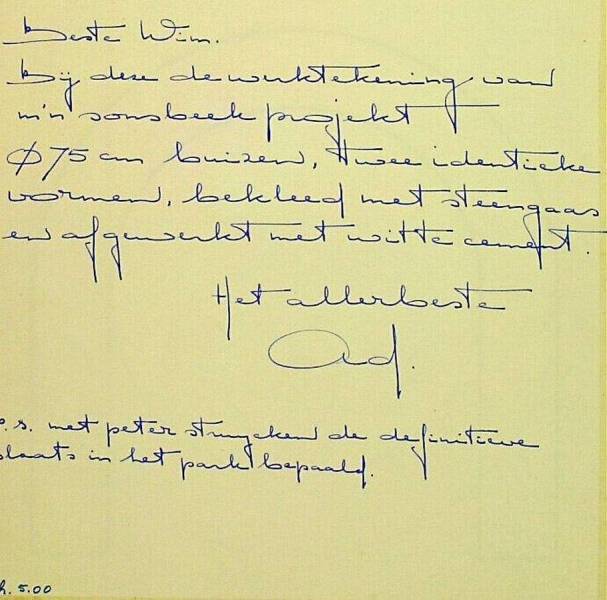 Beste Wim.
Bij deze de werktekening van
m'n sonsbeek projekt
Ø 75 cm buizen, twee identieke
vormen, bekleed met steengaas
en afgewerkt met witte cement.
Het allerbeste
Ad.
p.s. met peter struycken de definitieve
plaats in het park bepaald.
h. 5.00